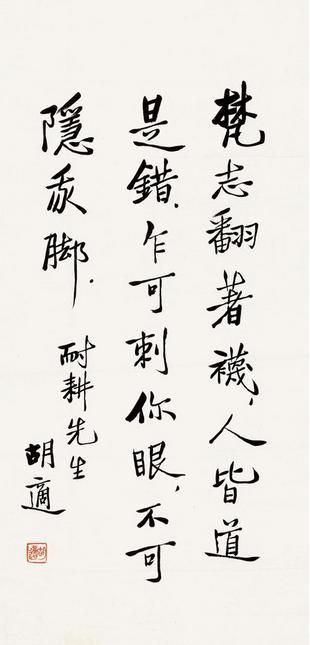 梵志翻著襪，人皆道
是錯．乍可刺你眼，不可
隱我脚．
耐耕先生
胡適